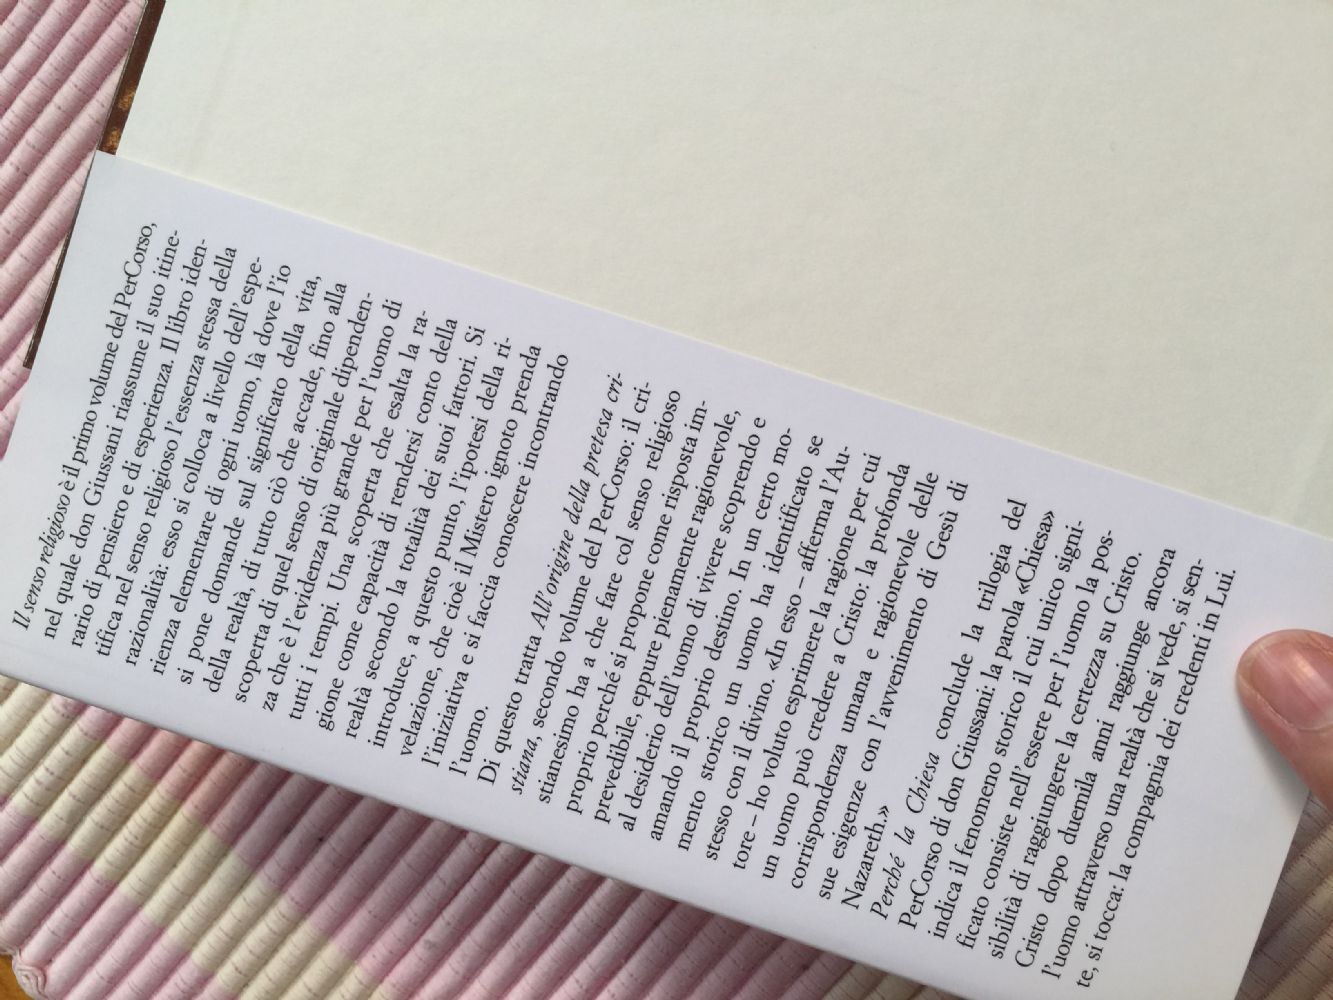 Il senso religioso è il primo volume del PerCorso,
nel quale don Giussani riassume il suo itine-
rario di pensiero e di esperienza. Il libro iden-
tifica nel senso religioso l'essenza stessa della
razionalità: esso si colloca a livello dell'espe-
rienza elementare di ogni uomo, là dove l'io
si pone domande sul significato della vita,
della realtà, di tutto ciò che accade, fino alla
scoperta di quel senso di originale dipenden-
za che è l'evidenza più grande per l'uomo di
tutti i tempi. Una scoperta che esalta la ra-
gione come capacità di rendersi conto della
realtà secondo la totalità dei suoi fattori. Si
introduce, a questo punto, l'ipotesi della ri-
velazione, che cioè il Mistero ignoto prenda
l'iniziativa e si faccia conoscere incontrando
l'uomo.
Di questo tratta All'origine della pretesa cri-
stiana, secondo volume del PerCorso: il cri-
stianesimo ha a che fare col senso religioso
proprio perché si propone come risposta im-
prevedibile, eppure pienamente ragionevole,
al desiderio dell'uomo di vivere scoprendo e
amando il proprio destino. In un certo mo-
mento storico un uomo ha identificato se
stesso con il divino. «In esso – afferma l'Au-
tore – ho voluto esprimere la ragione per cui
un uomo può credere a Cristo: la profonda
corrispondenza umana e ragionevole delle
sue esigenze con l'avvenimento di Gesù di
Nazareth.»
Perché la Chiesa conclude la trilogia del
PerCorso di don Giussani: la parola «Chiesa»
indica il fenomeno storico il cui unico signi-
ficato consiste nell'essere per l'uomo la pos-
sibilità di raggiungere la certezza su Cristo.
Cristo dopo duemila anni raggiunge ancora
l'uomo attraverso una realtà che si vede, si sen-
te, si tocca: la compagnia dei credenti in Lui.